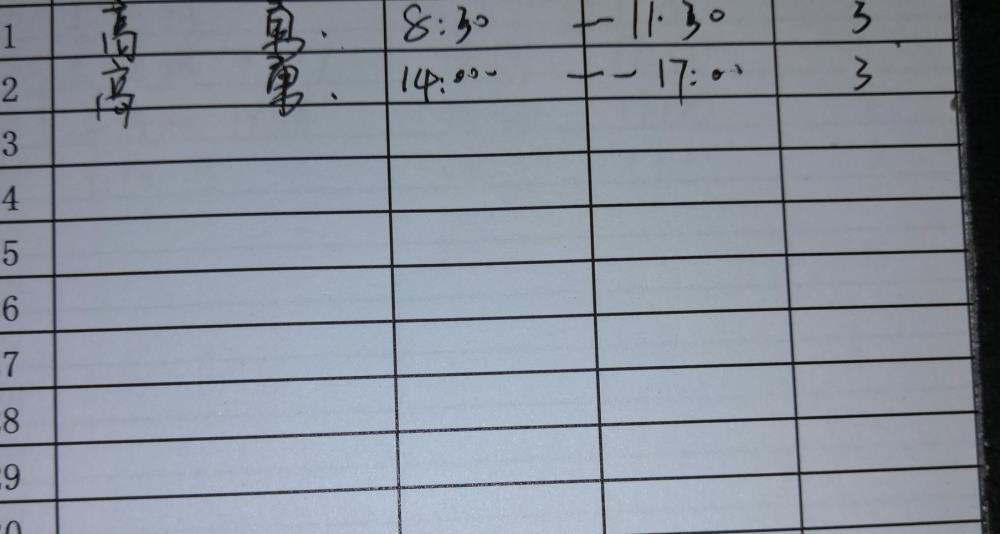 1 高 8:30 — 11:30 3
2 高 14:00 — — 17:00 3
3
4
5
6
7
8
9
0